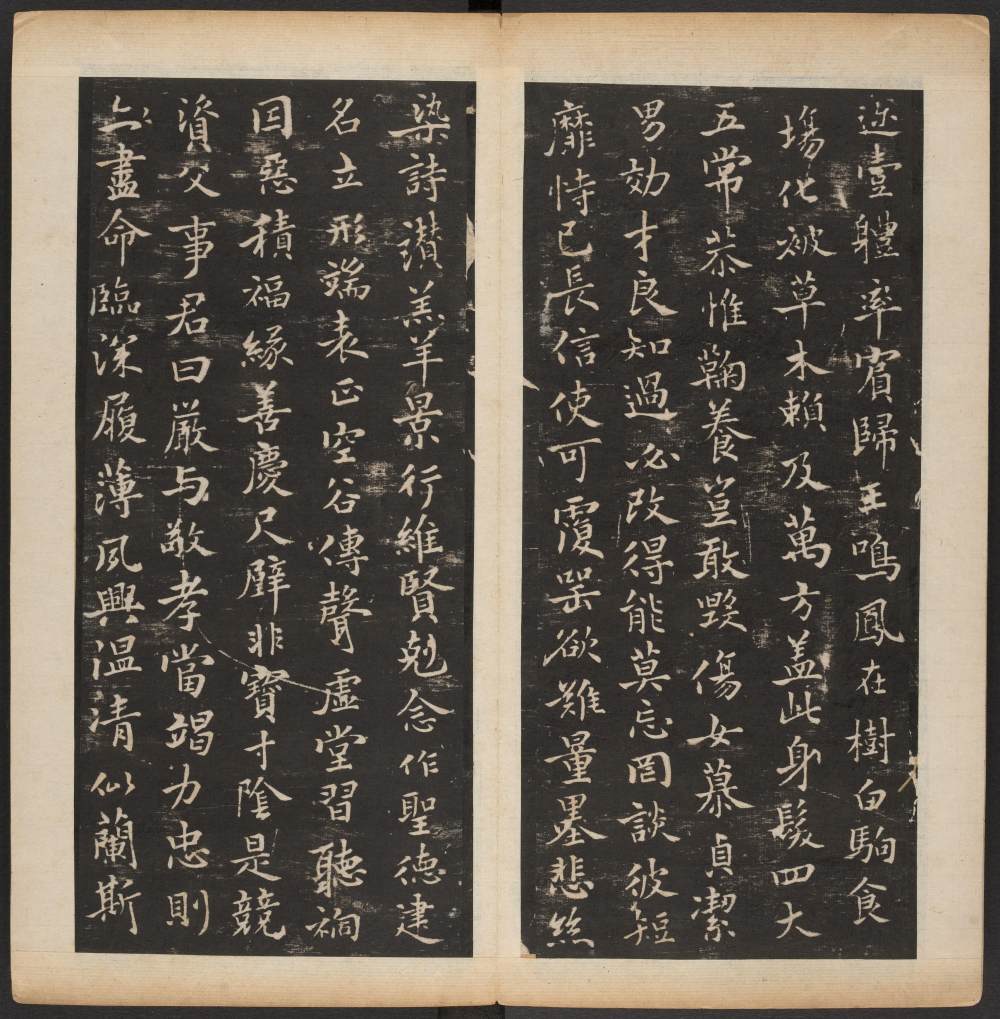 迩壹體率賓歸王鳴鳳在樹白駒食
塲化被草木賴及萬方盖此身髮四大
五常恭惟鞠養豈敢毀傷女慕貞潔
男効才良知過必改得能莫忘罔談彼短
靡恃己長信使可覆器欲難量墨悲絲
染詩讃羔羊景行維賢剋念作聖德建
名立形端表正空谷傳聲虛堂習聽禍
因惡積福緣善慶尺璧非寶寸陰是競
資父事君曰嚴与敬孝當竭力忠則
盡命臨深履薄夙興温凊似蘭斯